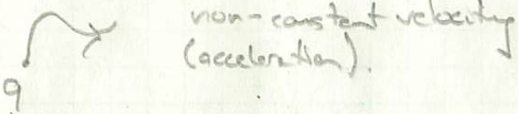 non-constant velocity
(acceleration).
q